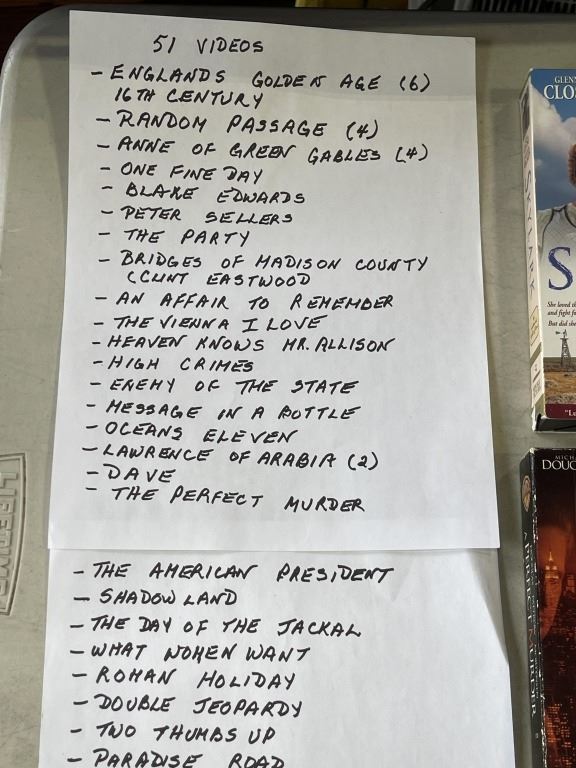 51 VIDEOS
- ENGLANDS GOLDEN AGE (6)
16TH CENTURY
- RANDOM PASSAGE (4)
- ANNE OF GREEN GABLES (4)
- ONE FINE DAY
- BLAKE EDWARDS
- PETER SELLERS
- THE PARTY
- BRIDGES OF MADISON COUNTY
(CLINT EASTWOOD
- AN AFFAIR TO REMEMBER
- THE VIENNA I LOVE
- HEAVEN KNOWS MR. ALLISON
- HIGH CRIMES
- ENEMY OF THE STATE
- MESSAGE IN A BOTTLE
- OCEANS ELEVEN
- LAWRENCE OF ARABIA (2)
- DAVE
- THE PERFECT MURDER
- THE AMERICAN PRESIDENT
- SHADOWLAND
- THE DAY OF THE JACKAL
- WHAT WOMEN WANT
- ROMAN HOLIDAY
- DOUBLE JEOPARDY
- TWO THUMBS UP
- PARADISE ROAD
LIFETIME
GLENN
CLO
SKYLARK
S
She loved
and fight
But did she
MICH
DOUG
A PERFECT MURDER